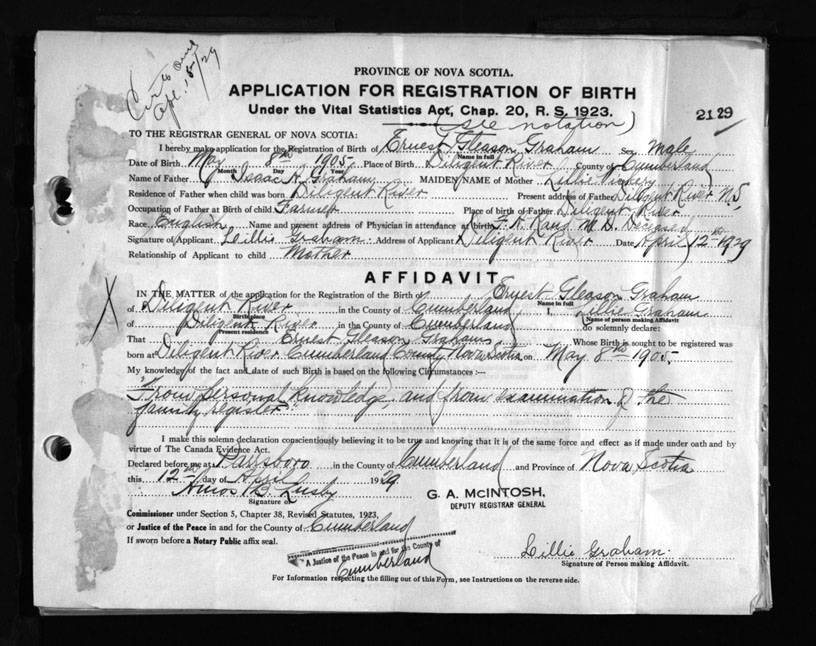 PROVINCE OF NOVA SCOTIA.
APPLICATION FOR REGISTRATION OF BIRTH
Under the Vital Statistics Act, Chap. 20, R. S. 1923.
(see notation)
2129
TO THE REGISTRAR GENERAL OF NOVA SCOTIA:
I hereby make application for the Registration of Birth of Ernest Gleason Graham Sex Male
Name in full
Date of Birth May 8th 1905 Place of Birth Diligent River County of Cumberland
Month Day Year
Name of Father Isaac H. Graham MAIDEN NAME of Mother Lillie
Residence of Father when child was born Diligent River Present address of Father Diligent River N.S.
Occupation of Father at Birth of child Farmer Place of birth of Father Diligent River
Race English Name and present address of Physician in attendance at birth F. A. Rand M. D. Deceased
Signature of Applicant Lillie Graham Address of Applicant Diligent River Date April 12th 1929
Relationship of Applicant to child Mother
AFFIDAVIT
IN THE MATTER of the application for the Registration of the Birth of Ernest Gleason Graham
Name in full
of Diligent River in the County of Cumberland I, Lillie Graham
Birthplace Name of person making Affidavit
of Diligent River in the County of Cumberland do solemnly declare:
Present residence
That Ernest Gleason Graham Whose Birth is sought to be registered was
born at Diligent River Cumberland County, Nova Scotia, on May 8th 1905.
My knowledge of the fact and date of such Birth is based on the following Circumstances :—
"From personal knowledge, and from examination of the
family register."
I make this solemn declaration conscientiously believing it to be true and knowing that it is of the same force and effect as if made under oath and by
virtue of The Canada Evidence Act.
Declared before me at Parrsboro in the County of Cumberland and Province of Nova Scotia
this 12th day of April 1929
Amos B. Lusby
Signature of
G. A. McINTOSH,
DEPUTY REGISTRAR GENERAL
Commissioner under Section 5, Chapter 38, Revised Statutes, 1923,
or Justice of the Peace in and for the County of Cumberland
If sworn before a Notary Public affix seal.
A Justice of the Peace in and for the County of
Cumberland
Lillie Graham.
Signature of Person making Affidavit.
For Information respecting the filling out of this Form, see Instructions on the reverse side.